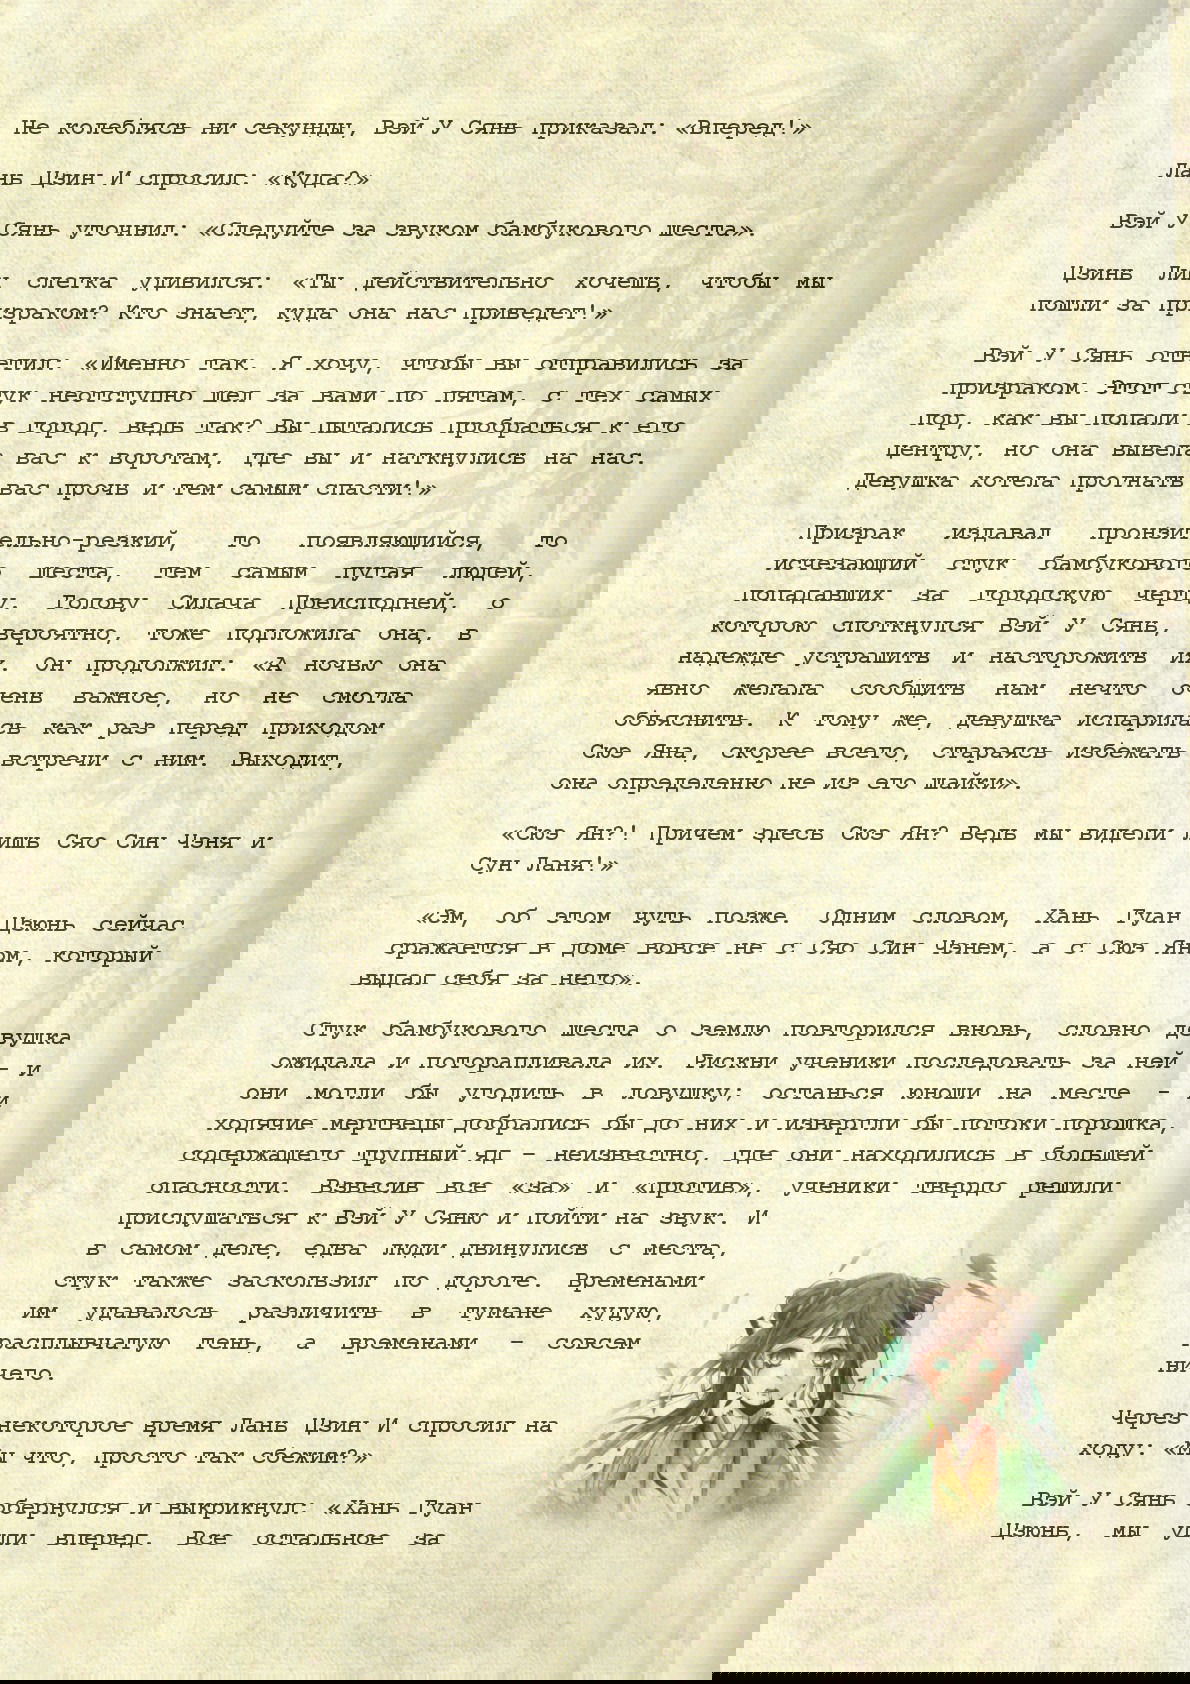 Не колеблясь ни секунды, Вэй У Сянь приказал: «Вперед!»
Лань Цзин И спросил: «Куда?»
Вэй У Сянь уточнил: «Следуйте за звуком бамбукового шеста».
Цзинь Лин слегка удивился: «Ты действительно хочешь, чтобы мы
пошли за призраком? Кто знает, куда она нас приведет!»
Вэй У Сянь ответил: «Именно так. Я хочу, чтобы вы отправились за
призраком. Этот стук неотступно шел за вами по пятам, с тех самых
пор, как вы попали в город, ведь так? Вы пытались пробраться к его
центру, но она вывела вас к воротам, где вы и наткнулись на нас.
Девушка хотела прогнать вас прочь и тем самым спасти!»
Призрак издавал пронзительно-резкий, то появляющийся, то
исчезающий стук бамбукового шеста, тем самым пугая людей,
попадавших за городскую черту. Голову Силача Преисподней, о
которою споткнулся Вэй У Сянь, вероятно, тоже подложила она, в
надежде устрашить и насторожить их. Он продолжил: «А ночью она
явно желала сообщить нам нечто очень важное, но не смогла
объяснить. К тому же, девушка испарилась как раз перед приходом
Сюэ Яна, скорее всего, стараясь избежать встречи с ним. Выходит,
она определенно не из его шайки».
«Сюэ Ян?! Причем здесь Сюэ Ян? Ведь мы видели лишь Сяо Син Чэня и
Сун Ланя!»
«Эм, об этом чуть позже. Одним словом, Хань Гуан Цзюнь сейчас
сражается в доме вовсе не с Сяо Син Чэнем, а с Сюэ Яном, который
выдал себя за него».
Стук бамбукового шеста о землю повторился вновь, словно девушка
ожидала и поторапливала их. Рискни ученики последовать за ней – и
они могли бы угодить в ловушку; останься юноши на месте – и
ходячие мертвецы добрались бы до них и извергли бы потоки порошка,
содержащего трупный яд – неизвестно, где они находились в большей
опасности. Взвесив все «за» и «против», ученики твердо решили
прислушаться к Вэй У Сяню и пойти на звук. И
в самом деле, едва люди двинулись с места,
стук также заскользил по дороге. Временами
им удавалось различить в тумане худую,
расплывчатую тень, а временами – совсем
ничего.
Через некоторое время Лань Цзин И спросил на
ходу: «Мы что, просто так сбежим?»
Вэй У Сянь обернулся и выкрикнул: «Хань Гуан
Цзюнь, мы ушли вперед. Все остальное за